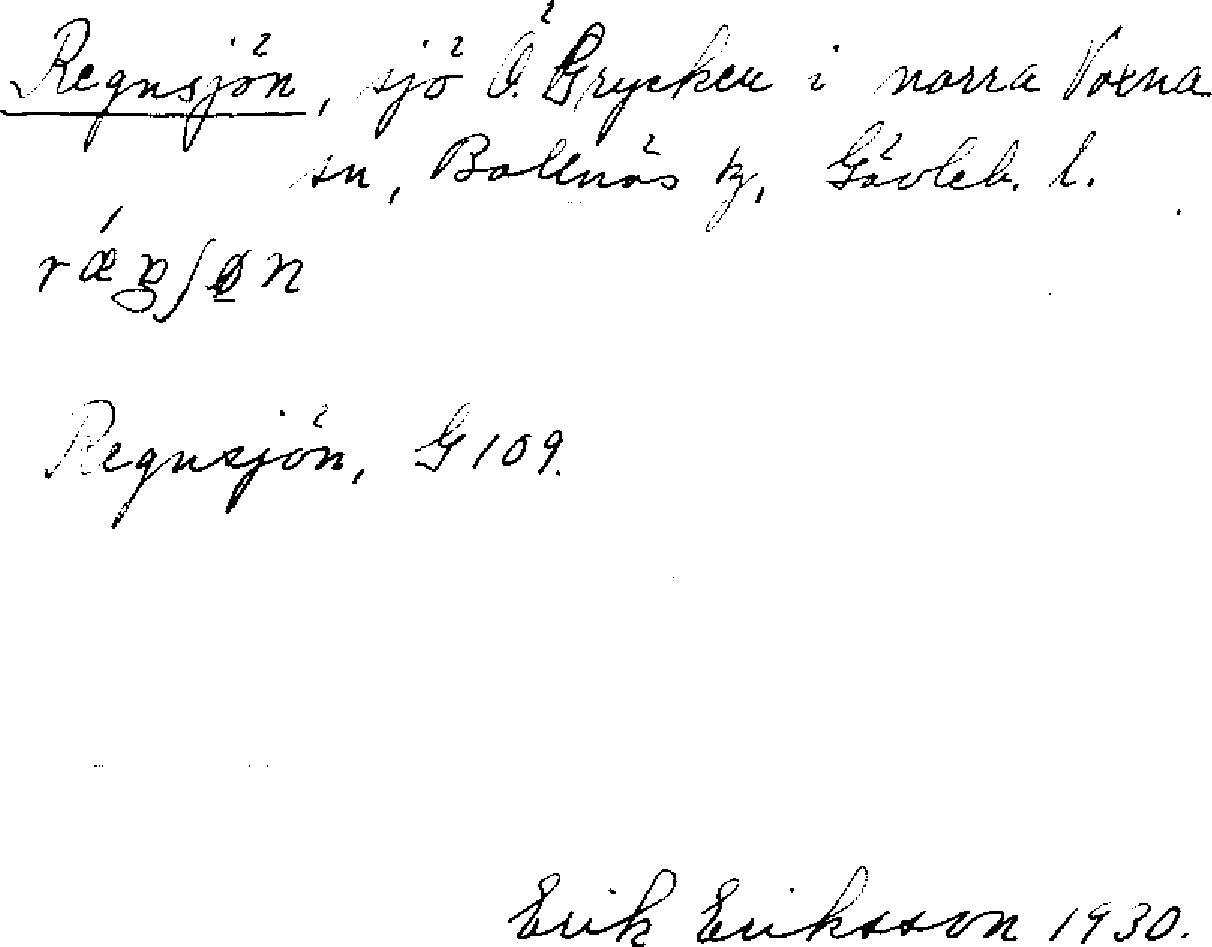 Regnsjön, sjö Ö. Grycken i norra Voxna
sn, Bollnäs tg, Gävleb. l.
Regnsjön, G 109.
Erik Eriksson 1930.